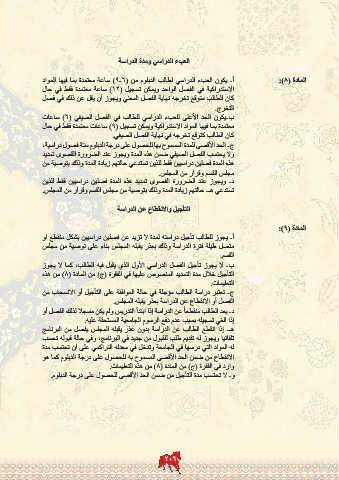 العبء الدراسي ومدة الدراسة
المادة (٨):
أ- يكون العبء الدراسي لطالب الدبلوم من (٦-٩) ساعة معتمدة بما فيها المواد
الاستدراكية في الفصل الواحد ويمكن تسجيل (١٢) ساعة معتمدة فقط في حال
كان الطالب متوقع تخرجه نهاية الفصل المعني ويجوز أن يقل عن ذلك في فصل
التخرج.
ب- يكون الحد الأعلى للعبء الدراسي للطالب في الفصل الصيفي (٦) ساعات
معتمدة بما فيها المواد الاستدراكية ويمكن تسجيل (٩) ساعات معتمدة فقط في حال
كان الطالب متوقع تخرجه في نهاية الفصل الصيفي.
ج- الحد الأقصى للمدة المسموح بها للحصول على درجة الدبلوم ستة فصول دراسية،
ولا يحتسب الفصل الصيفي ضمن هذه المدة ويجوز عند الضرورة القصوى تمديد
هذه المدة فصلين دراسيين فقط للذين تستدعي حالتهم زيادة المدة وذلك بتوصية من
مجلس القسم وقرار من المجلس.
د- ويجوز عند الضرورة القصوى تمديد هذه المدة فصلين دراسيين فقط للذين
تستدعي حالتهم زيادة المدة وذلك بتوصية من مجلس القسم وقرار من المجلس.
التأجيل والانقطاع عن الدراسة
المادة (٩):
أ- يجوز للطالب تأجيل دراسته لمدة لا تزيد عن فصلين دراسيين بشكل متقطع أو
متصل طيلة فترة الدراسة وذلك بعذر يقبله المجلس بناء على توصية من مجلس
القسم.
ب- لا يجوز تأجيل الفصل الدراسي الأول الذي يقبل فيه الطالب، كما لا يجوز
التأجيل خلال مدة التمديد المنصوص عليها في الفقرة (ج) من المادة (٨) من هذه
التعليمات.
ج- تعتبر دراسة الطالب مؤجلة في حالة الموافقة على التأجيل أو الانسحاب من
الفصل أو الانقطاع عن الدراسة بعذر يقبله المجلس.
د- يعد الطالب منقطعاً عن الدراسة إذا ابتدأ التدريس ولم يكن مسجلاً لذلك الفصل أو
إذا الغي تسجيله بسبب عدم دفع الرسوم الجامعية المستحقة عليه.
هـ- إذا انقطع الطالب عن الدراسة بدون عذر يقبله المجلس يفصل من البرنامج
تلقائيا ويجوز له تقديم طلب للقبول من جديد في البرنامج، وفي حالة قبوله تحسب
له المواد التي درسها في الجامعة وتدخل في معدله التراكمي على أن تحتسب مدة
الانقطاع من ضمن الحد الأقصى المسموح به للحصول على درجة الدبلوم كما هو
وارد في الفقرة (ج) من المادة (٨) من هذه التعليمات.
و- لا تحتسب مدة التأجيل من ضمن الحد الأقصى للحصول على درجة الدبلوم.